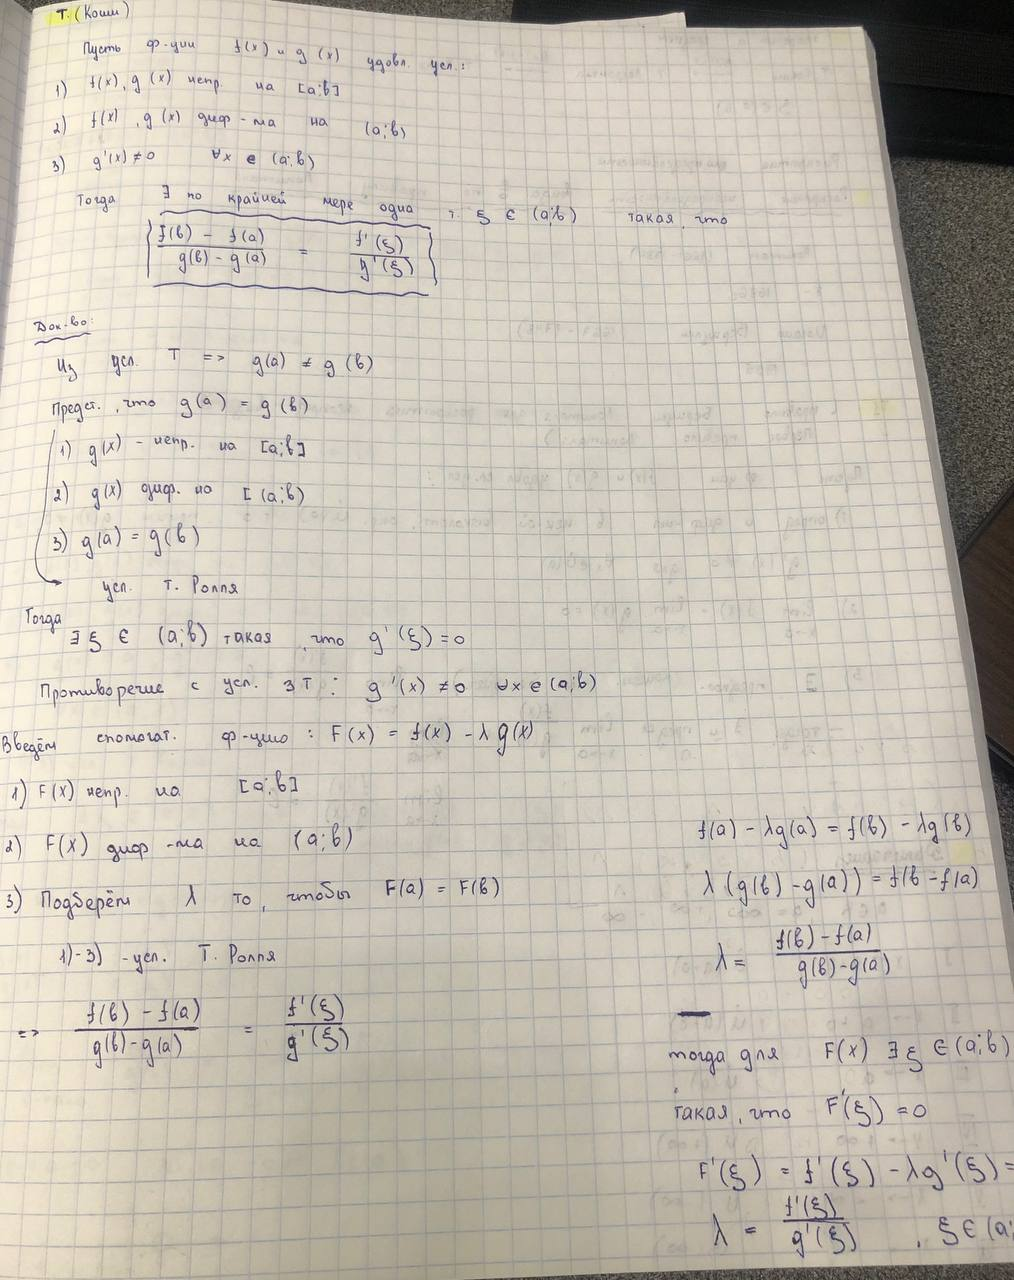 Т. (Коши)
Пусть ф-ции f(x) и g(x) удовл. усл.:
1) f(x), g(x) непр. на [a;b]
2) f(x), g(x) диф-ма на (a;b)
3) g'(x) ≠ 0 ∀x ∈ (a;b)
Тогда ∃ по крайней мере одна т. ξ ∈ (a;b) такая, что
(f(b) - f(a))/(g(b) - g(a)) = f'(ξ)/g'(ξ)
Док-во:
Из усл. Т => g(a) ≠ g(b)
Предст., что g(a) = g(b)
1) g(x) - непр. на [a;b]
2) g(x) диф. на [ (a;b)
3) g(a) = g(b)
усл. т. Ролля
Тогда
∃ ξ ∈ (a;b) такая, что g'(ξ) = 0
Противоречие с усл. 3 Т: g'(x) ≠ 0 ∀x ∈ (a;b)
Введём спомогат. ф-цию: F(x) = f(x) - λ g(x)
1) F(x) непр. на [a;b]
2) F(x) диф-ма на (a;b)
3) Подберём λ то, чтобы F(a) = F(b)
1)-3) - усл. Т. Ролля
=> (f(b) - f(a))/(g(b) - g(a)) = f'(ξ)/g'(ξ)
f(a) - λg(a) = f(b) - λg(b)
λ (g(b) - g(a)) = f(b - f(a)
λ = (f(b) - f(a))/(g(b) - g(a))
тогда для F(x) ∃ ξ ∈ (a;b)
такая, что F'(ξ) = 0
F'(ξ) = f'(ξ) - λg'(ξ) =
λ = f'(ξ)/g'(ξ) , ξ ∈ (a;